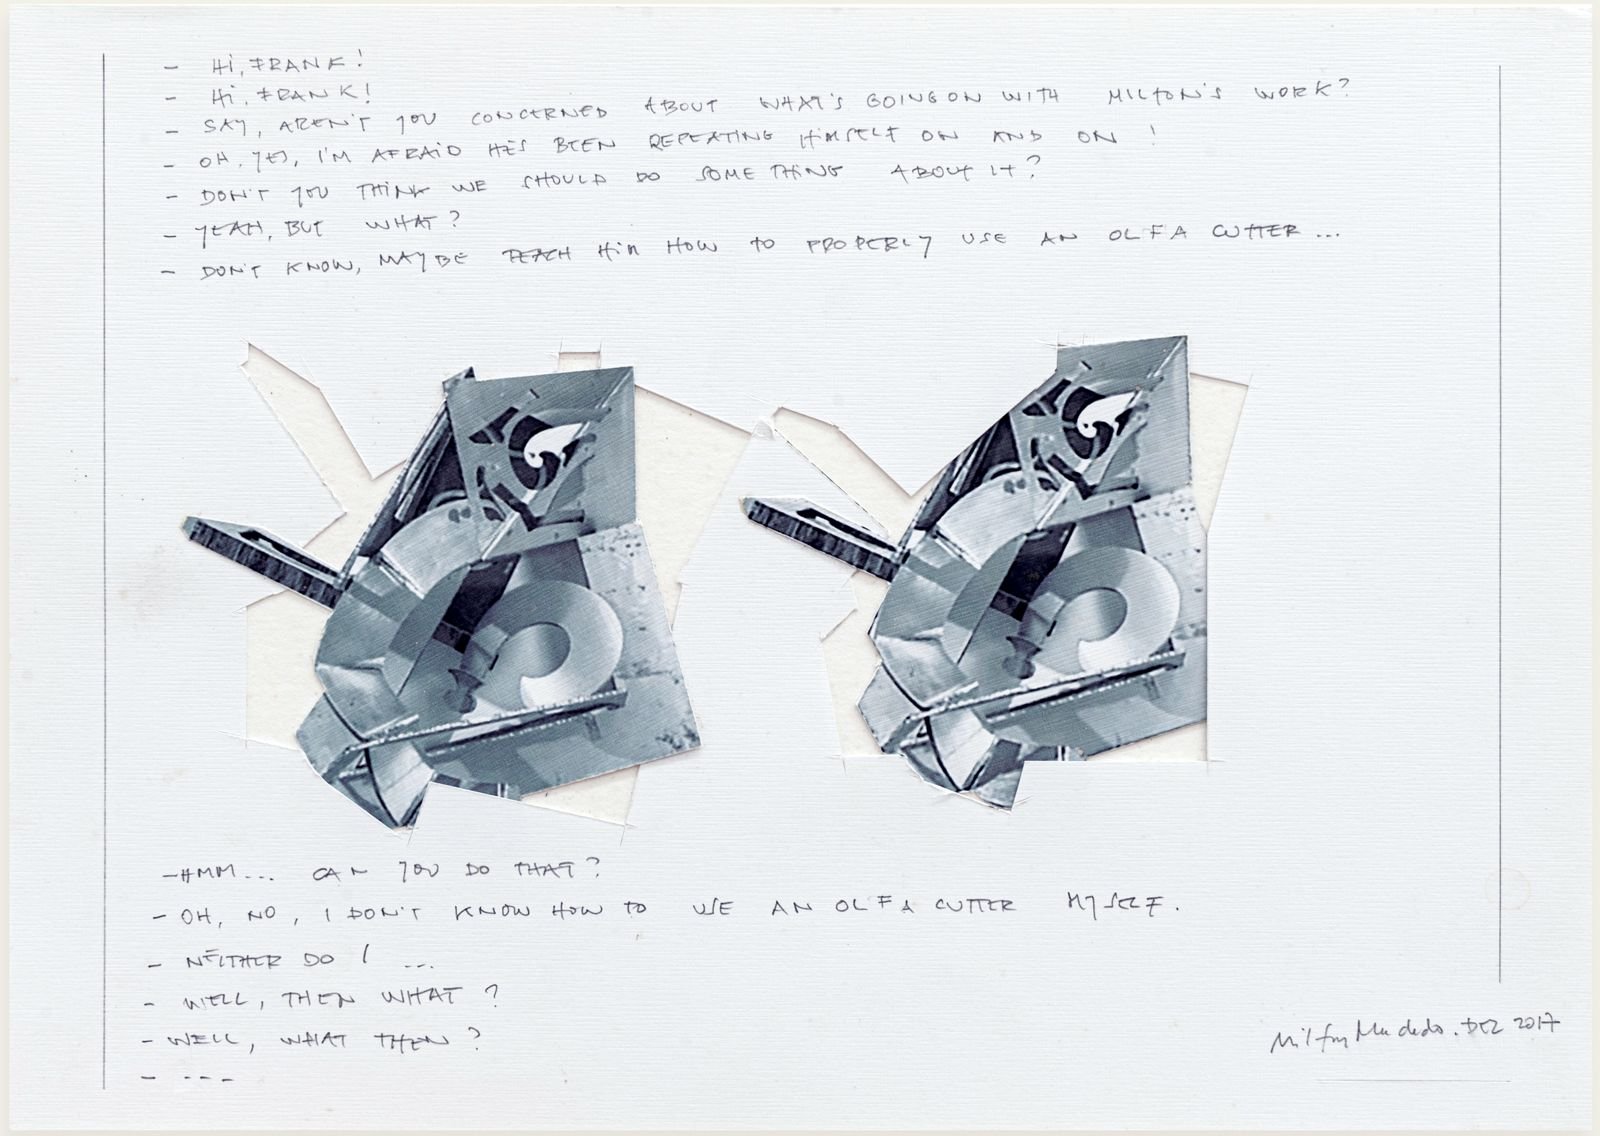 - HI, FRANK!
- HI, FRANK!
- SAY, AREN'T YOU CONCERNED ABOUT WHAT'S GOING ON WITH MILTON'S WORK?
- OH, YES, I'M AFRAID HE'S BEEN REPEATING HIMSELF ON AND ON!
- DON'T YOU THINK WE SHOULD DO SOMETHING ABOUT IT?
- YEAH, BUT WHAT?
- DON'T KNOW, MAYBE TEACH HIM HOW TO PROPERLY USE AN OLFA CUTTER...
- HMM... CAN YOU DO THAT?
- OH, NO, I DON'T KNOW HOW TO USE AN OLFA CUTTER MYSELF.
- NEITHER DO I ...
- WELL, THEN WHAT?
- WELL, WHAT THEN?
- ---
Milton Machado. DEZ 2017